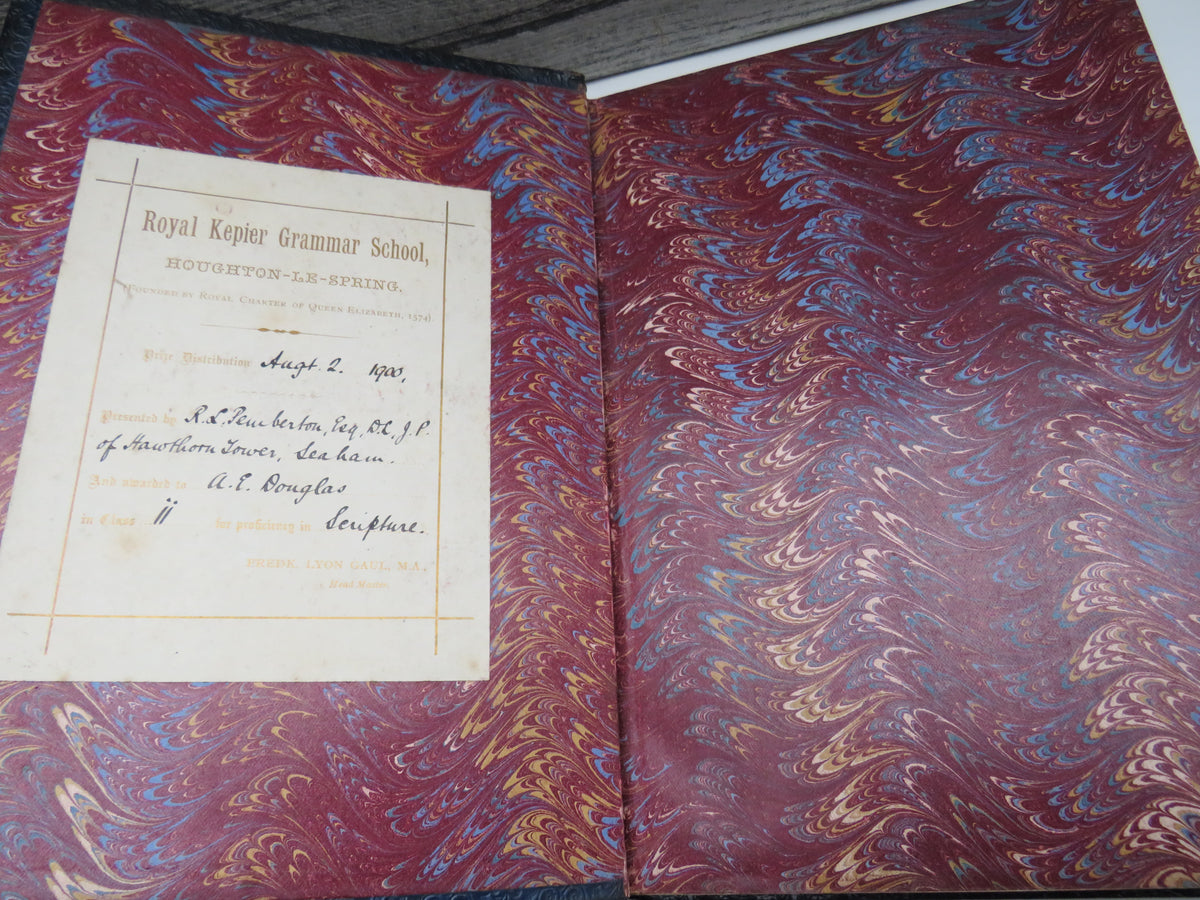 Royal Kepier Grammar School,
HOUGHTON-LE-SPRING.
(FOUNDED BY ROYAL CHARTER OF QUEEN ELIZABETH, 1574)
Prize Distribution Augt. 2. 1900.
Presented by R.L. Pemberton, Esq, D.L, J.P.
of Hawthorn Tower, Seaham.
And awarded to A.E. Douglas
in Class ii for proficiency in Scripture.
FREDK. LYON GAUL, M.A.,
Head Master.